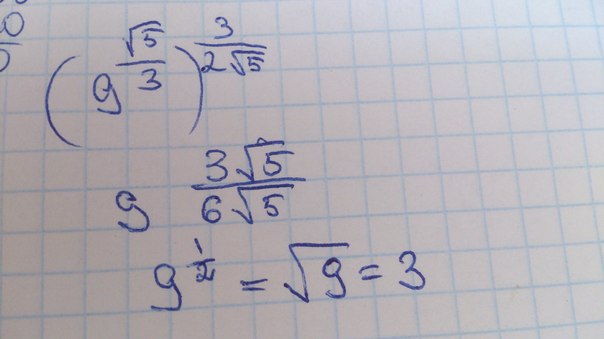 (9^{\frac{\sqrt{5}}{3}})^{\frac{3}{2\sqrt{5}}}
9^{\frac{3\sqrt{5}}{6\sqrt{5}}}
9^{\frac{1}{2}} = \sqrt{9} = 3